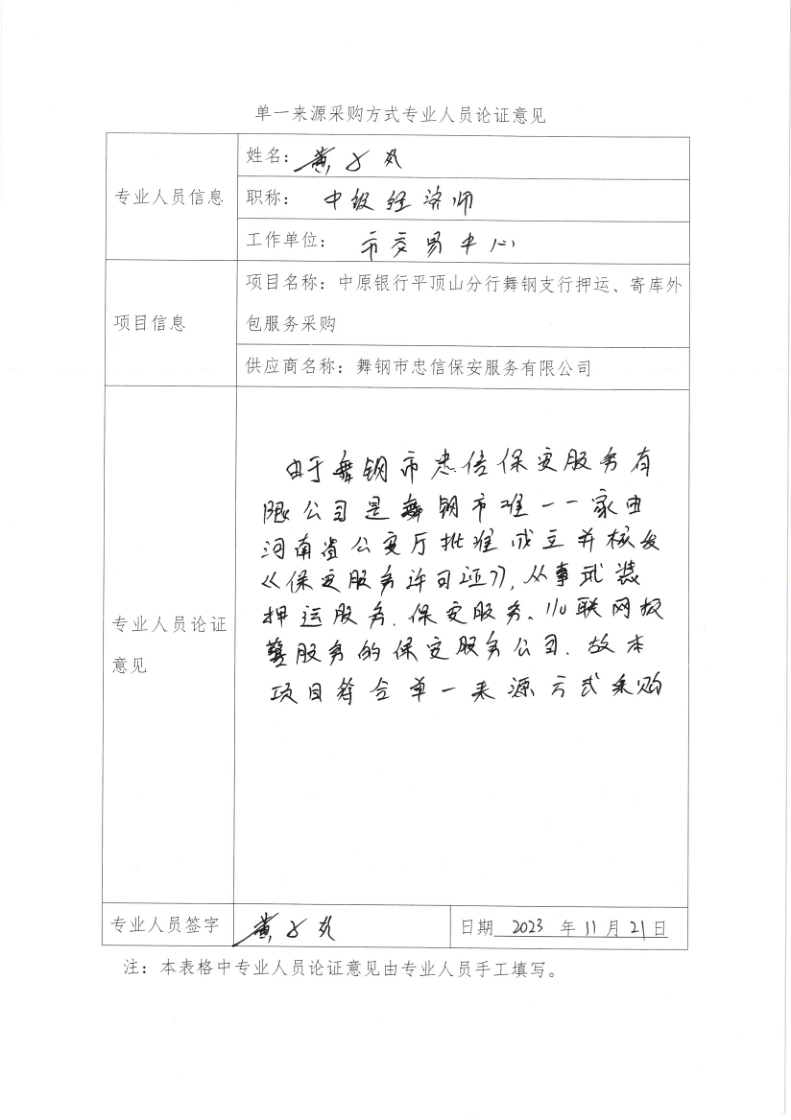 单一来源采购方式专业人员论证意见
专业人员信息
姓名：黄
职称：中级经济师
工作单位：市交易中心
项目信息
项目名称：中原银行平顶山分行舞钢支行押运、寄库外
包服务采购
供应商名称：舞钢市忠信保安服务有限公司
专业人员论证
意见
由于舞钢市忠信保安服务有
限公司是舞钢市唯一一家由
河南省公安厅批准成立并核发
《保安服务许可证》，从事武装
押运服务、保安服务、110联网报
警服务的保安服务公司．故本
项目符合单一来源方式采购
专业人员签字
黄
日期 2023 年 11 月 21 日
注：本表格中专业人员论证意见由专业人员手工填写。